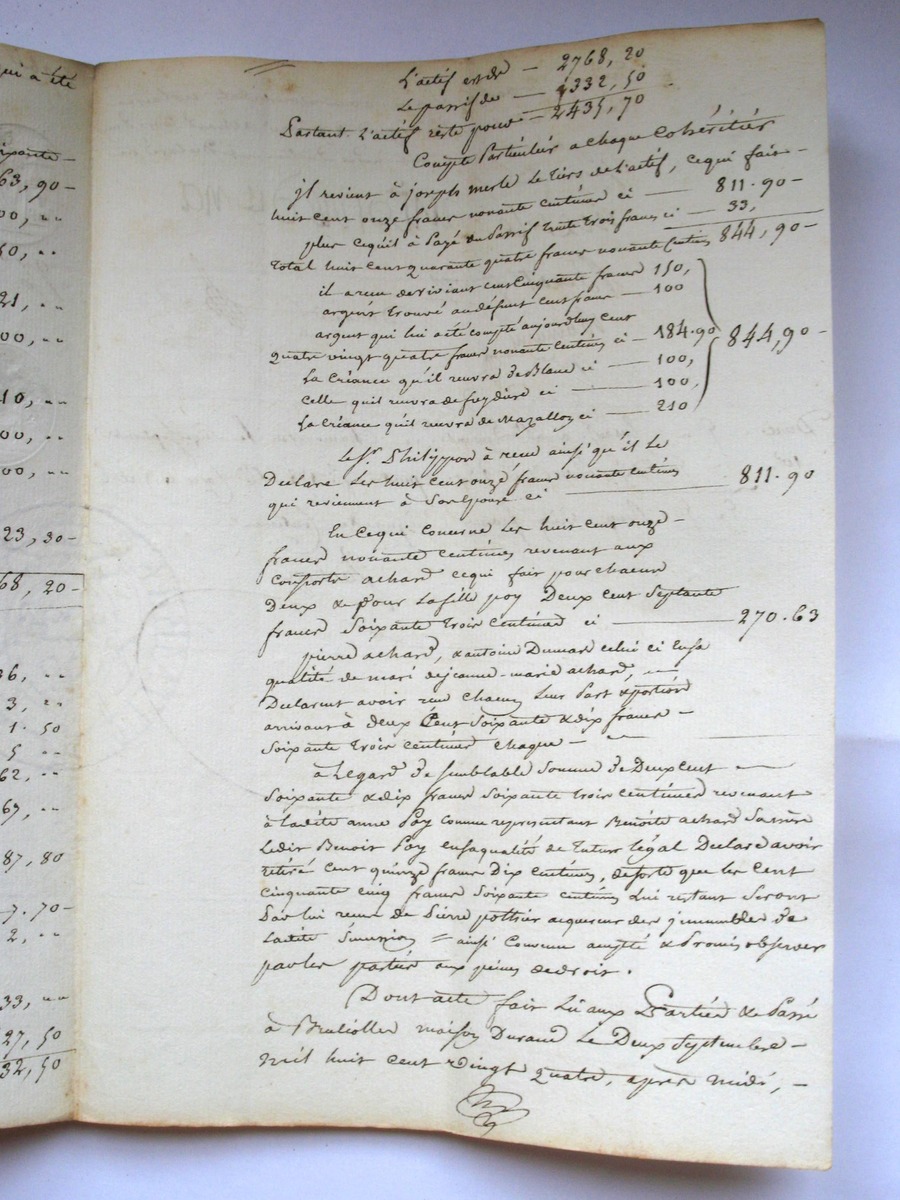 qui a été
ixante -
63, 90 -
00, ..
50, ..
21, ..
00, ..
10, ..
00, ..
00, ..
23, 30 -
68, 20 -
06, ..
3, ..
1. 50
5 ..
62, ..
67, ..
87, 80
7. 70 -
2, ..
33, ..
27, 50
32, 50
L'actif est de - 2768, 20
Le passif de - 332, 50
Partant L'actif reste pour - 2435, 70
Compte Particulier a chaque Cohéritier
il revient à joseph merle Le tiers de L'actif, ce qui fait -
huit cent onze francs nonante centimes ci - 811. 90 -
plus ce qu'il à Payé du Passif trente trois francs ci - 33,
Total huit cent quarante quatre francs nonante Centimes 844, 90 -
il a reçu de viviant cent Cinquante francs 150,
argent trouvé au défunt cent francs - 100
argent qui lui a été compté aujourdhuy cent
quatre vingt quatre francs nonante centimes ci - 184. 90 844, 90 -
La Créance qu'il recevra de Blanc ci - 100,
Celle qu'il recevra de ci - 100,
La Créance qu'il recevra de Mazalloz ci - 210
Le Sr. Philippon à reçu ainsi qu'il Le
Déclare Les huit cent onze francs nonante centimes
qui reviennent à Son Epouse ci - 811. 90
En ce qui concerne Les huit cent onze -
francs nonante centimes revenant aux
Consorts achard ce qui fait pour chacun
Deux & pour La fille poy Deux cent Septante
francs Soixante trois centimes ci - 270. 63
pierre achard, & antoine Dumas celui ci En sa
qualité de mari de jeanne-marie achard, -
Déclarent avoir reçu chacun Leur Part & portion
arrivant à deux Cent Soixante & dix francs -
Soixante trois centimes chaque -
à L'egard De semblable Somme De Deux cent -
Soixante & dix francs Soixante trois centimes revenant
à Ladite anne Poy comme représentant Benoîte achard Sa mère
Ledit Benoit Poy en sa qualité de tuteur Légal Déclare avoir
retiré cent quinze francs Dix centimes, de sorte que Les Cent
Cinquante cinq francs Soixante centimes Lui restant Seront
Par lui reçus de Pierre pothier acquereur des immeubles De
Ladite = ainsi Convenu accepté & Promis observer
par les parties aux peines de droit.
Dont acte fait Lû aux Parties & Passé
à maison Durand Le Deux Septembre -
mil huit cent vingt quatre, après midi, -